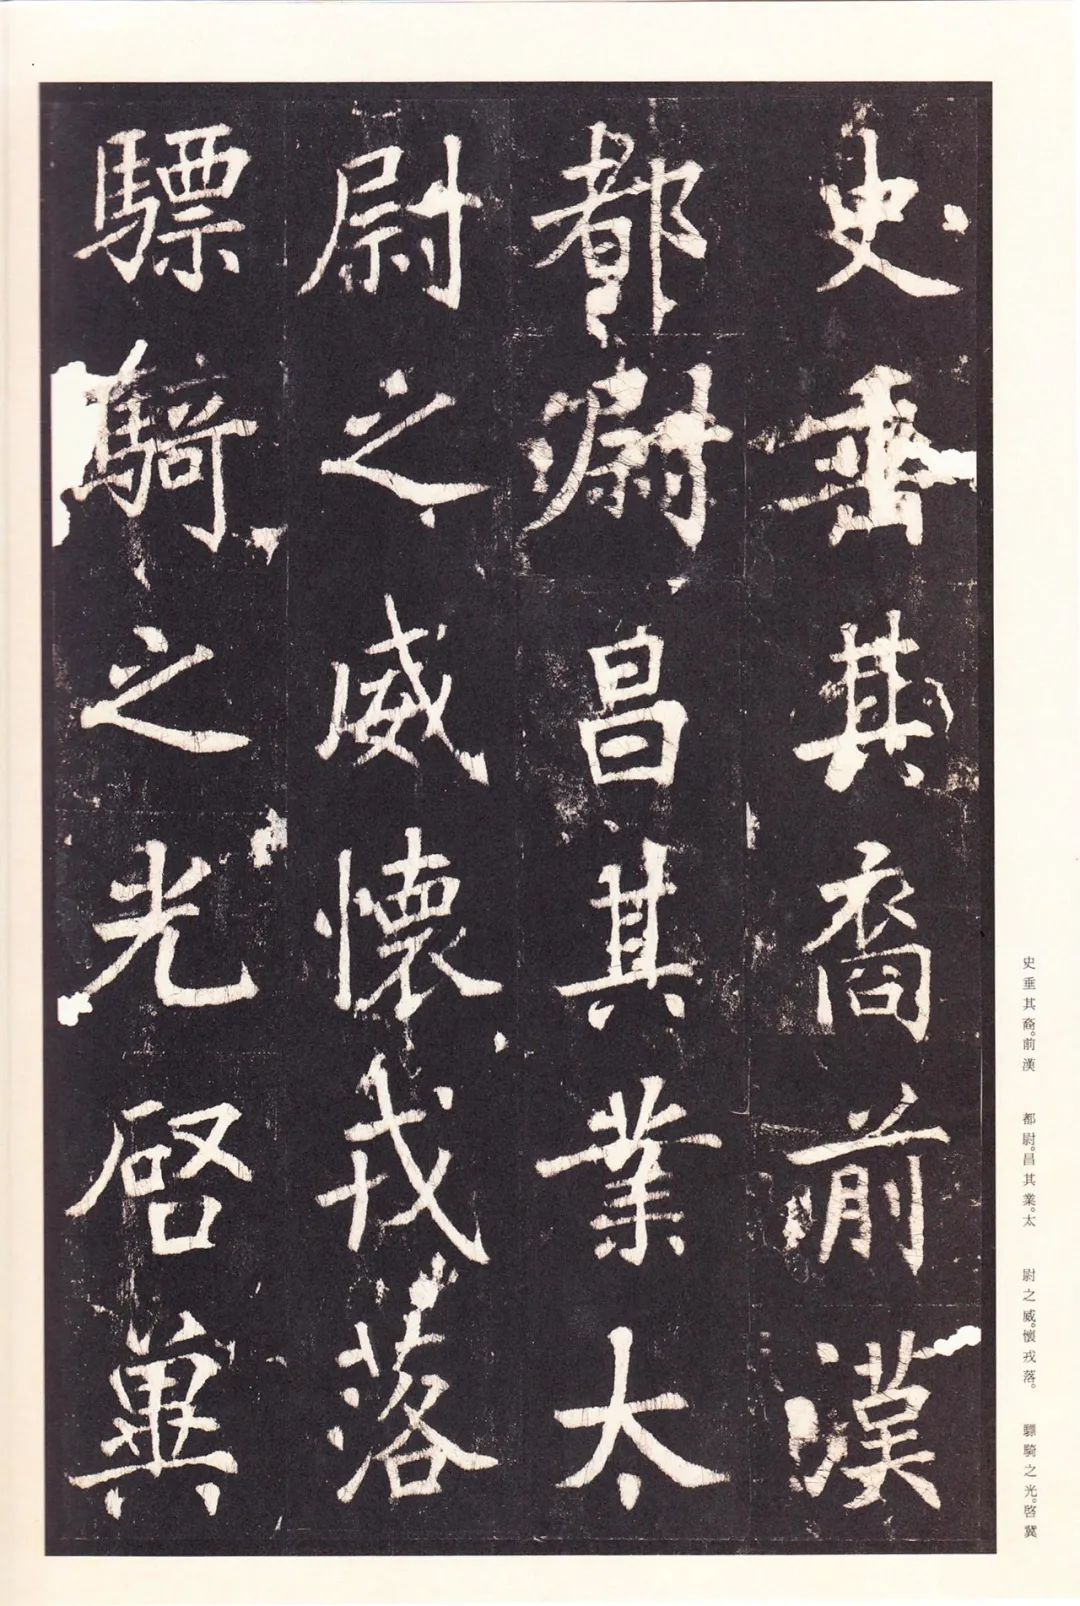 史垂其裔前漢
都尉昌其業太
尉之威懷戎落
驃騎之光啓冀
史垂其裔。前漢　都尉。昌其業。太　尉之威。懷戎落。　驃騎之光。啓冀